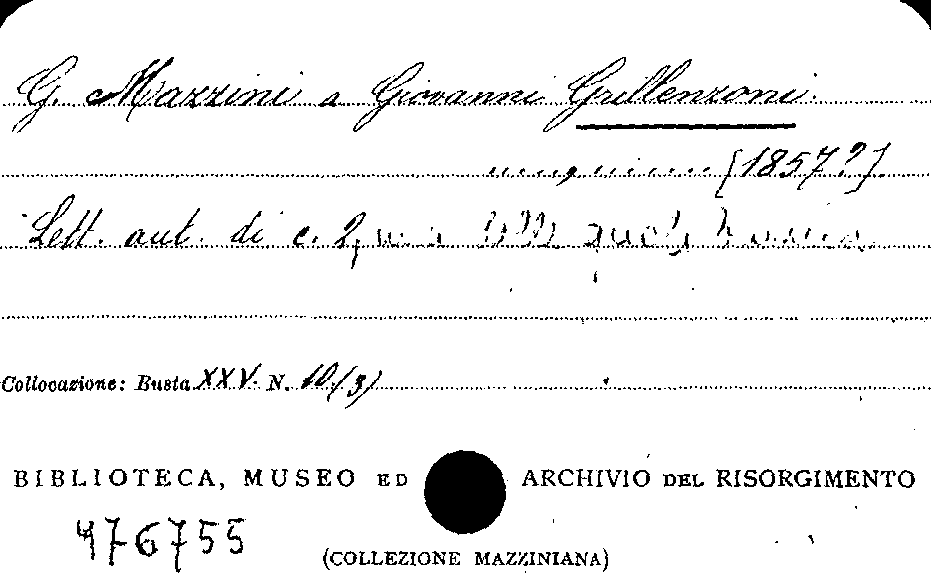 G. Mazzini a Giovanni Grillenzoni.
[1857?].
Lett. aut. di c. 2,
Collocazione: Busta XXV. N. 10/3)
BIBLIOTECA, MUSEO ED ARCHIVIO DEL RISORGIMENTO
476755
(COLLEZIONE MAZZINIANA)